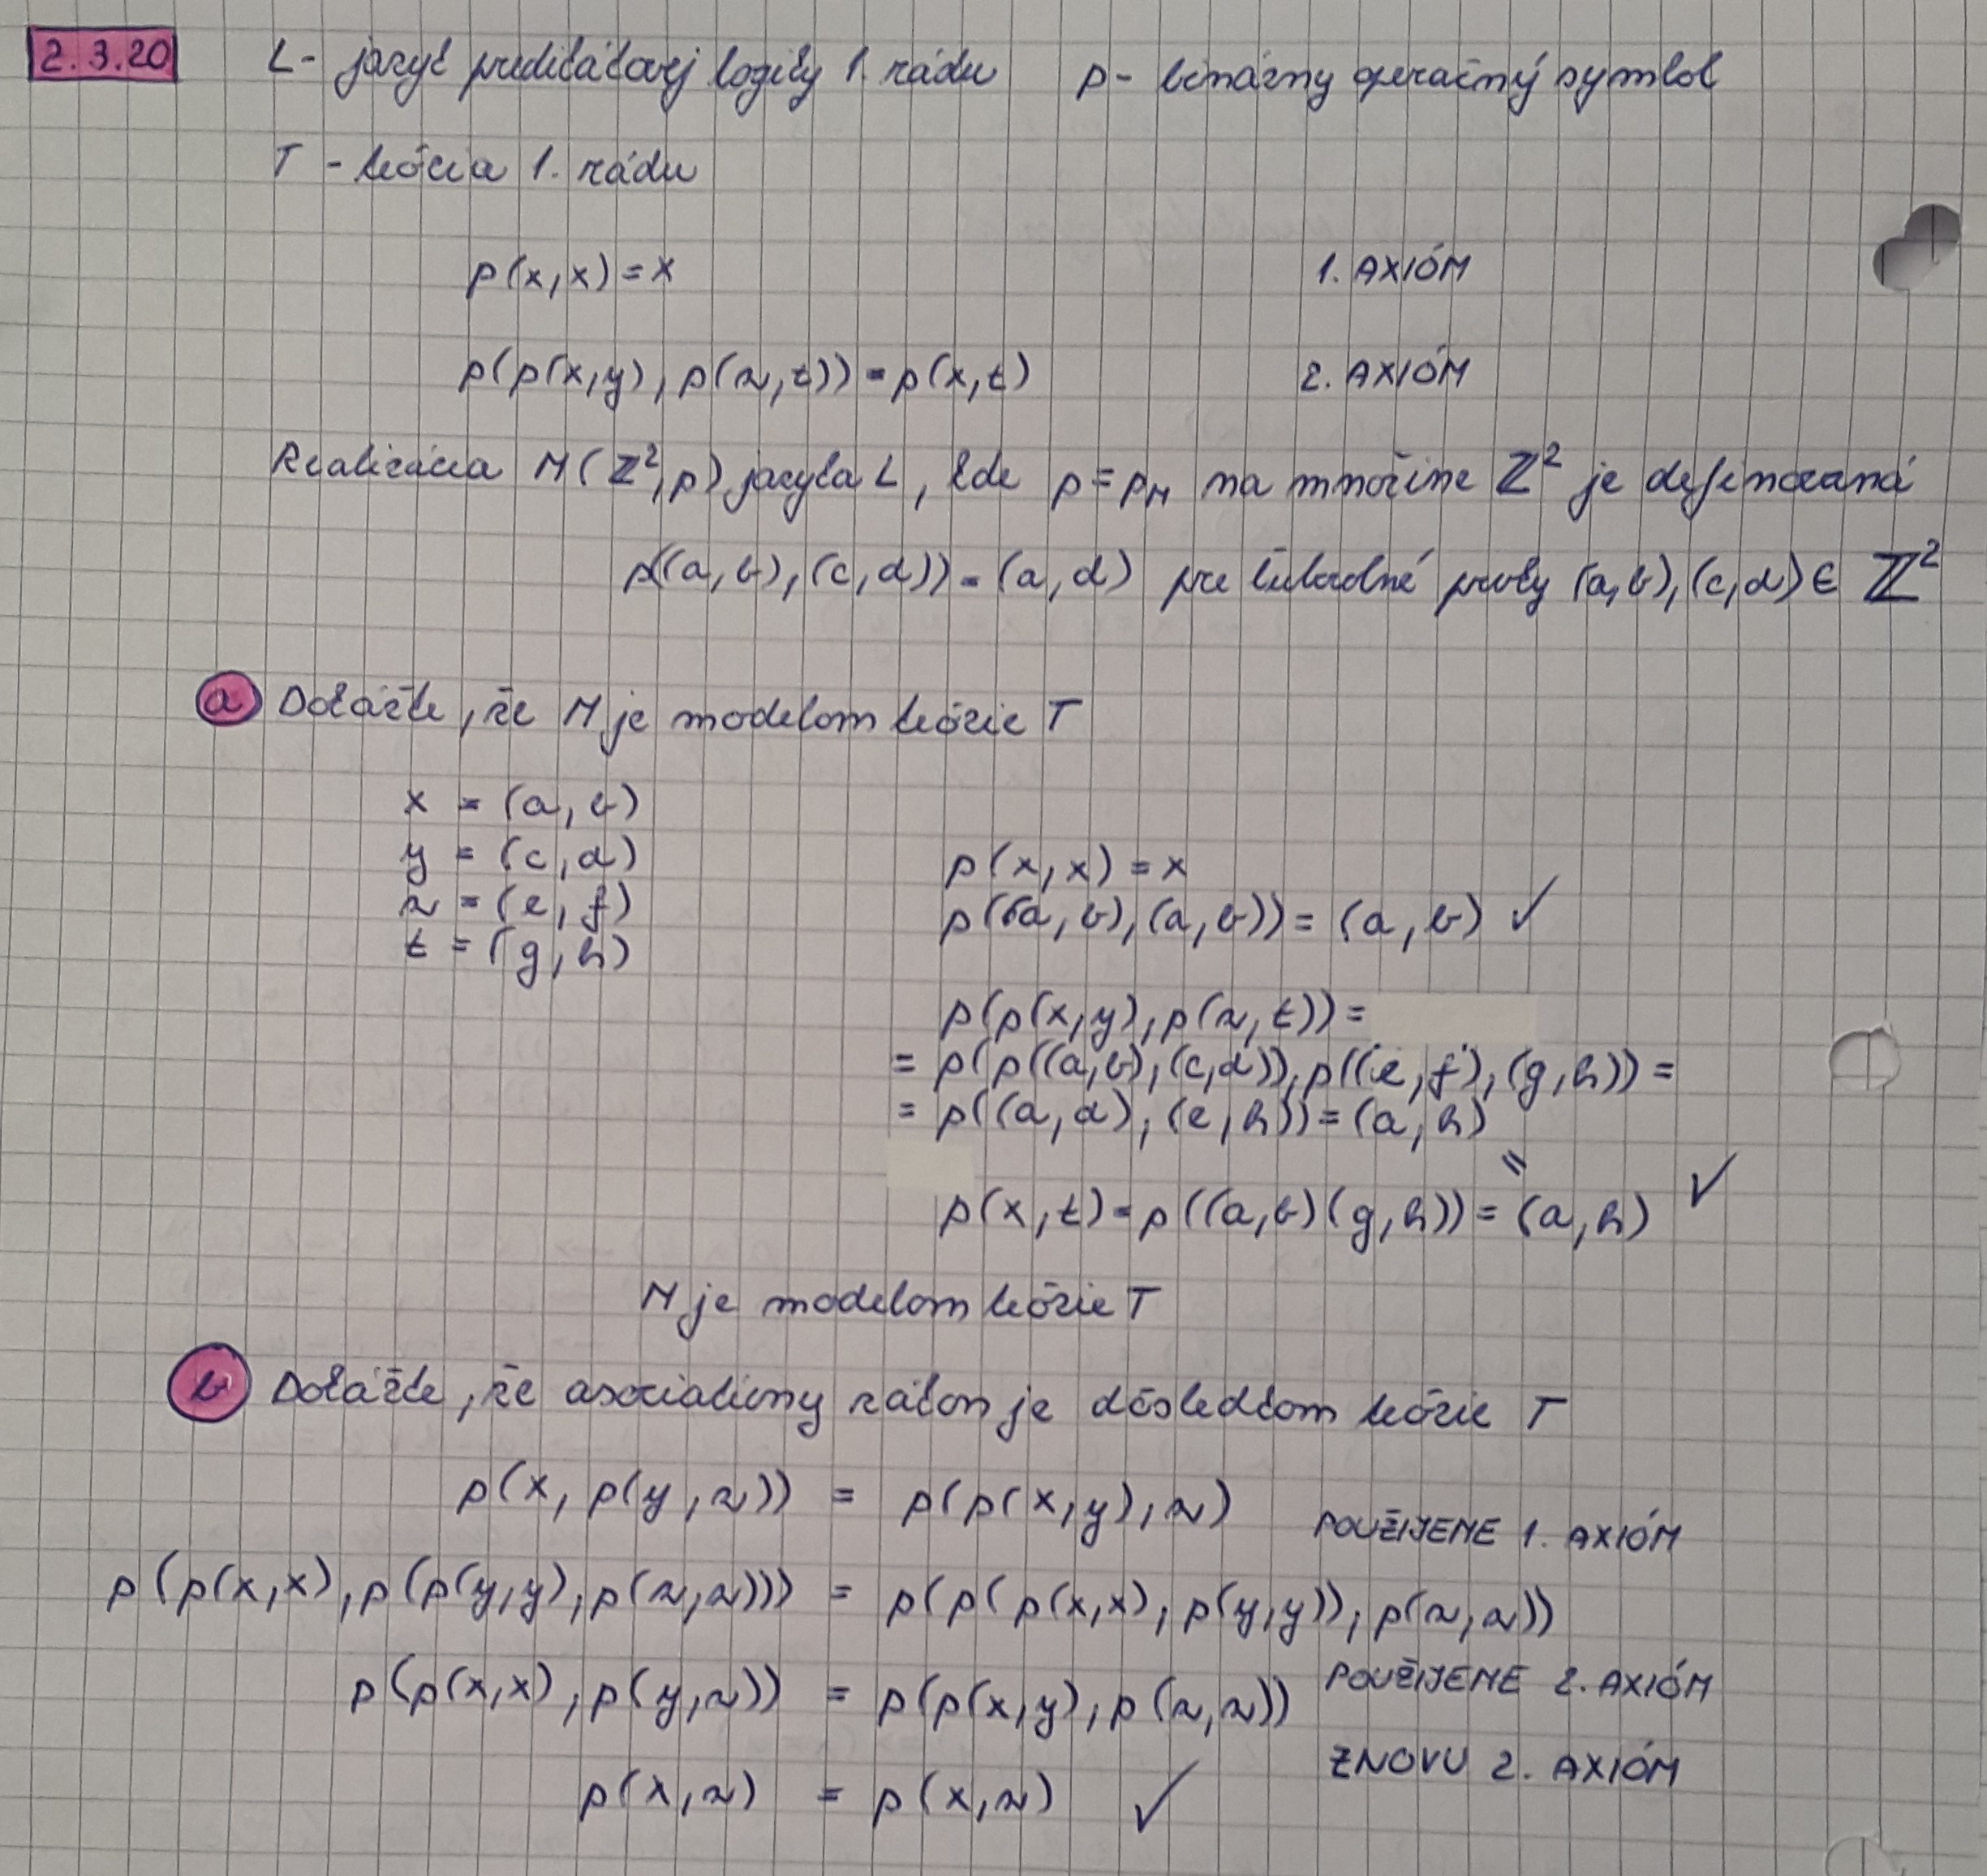 2.3.20 L - jazyk predikátovej logiky 1. rádu p - binárny operačný symbol
T - teória 1. rádu
p(x,x) = x 1. AXIÓM
p(p(x,y), p(z,t)) = p(x,t) 2. AXIÓM
Realizácia M(ℤ², p) jazyka L, kde p = p_M na množine ℤ² je definovaná
p((a,b),(c,d)) = (a,d) pre ľubovoľné prvky (a,b),(c,d) ∈ ℤ²
a Dokážte, že M je modelom teórie T
x = (a,b)
y = (c,d)
z = (e,f)
t = (g,h)
p(x,x) = x
p((a,b),(a,b)) = (a,b) ✓
p(p(x,y),p(z,t)) =
= p(p((a,b),(c,d)),p((e,f),(g,h)) =
= p((a,d),(e,h)) = (a,h)
=
p(x,t) = p((a,b)(g,h)) = (a,h) ✓
M je modelom teórie T
b Dokážte, že asociatívny zákon je dôsledkom teórie T
p(x, p(y,z)) = p(p(x,y),z) POUŽIJEME 1. AXIÓM
p(p(x,x),p(p(y,y),p(z,z))) = p(p(p(x,x),p(y,y)),p(z,z))
p(p(x,x),p(y,z)) = p(p(x,y),p(z,z)) POUŽIJEME 2. AXIÓM
ZNOVU 2. AXIÓM
p(x,z) = p(x,z) ✓